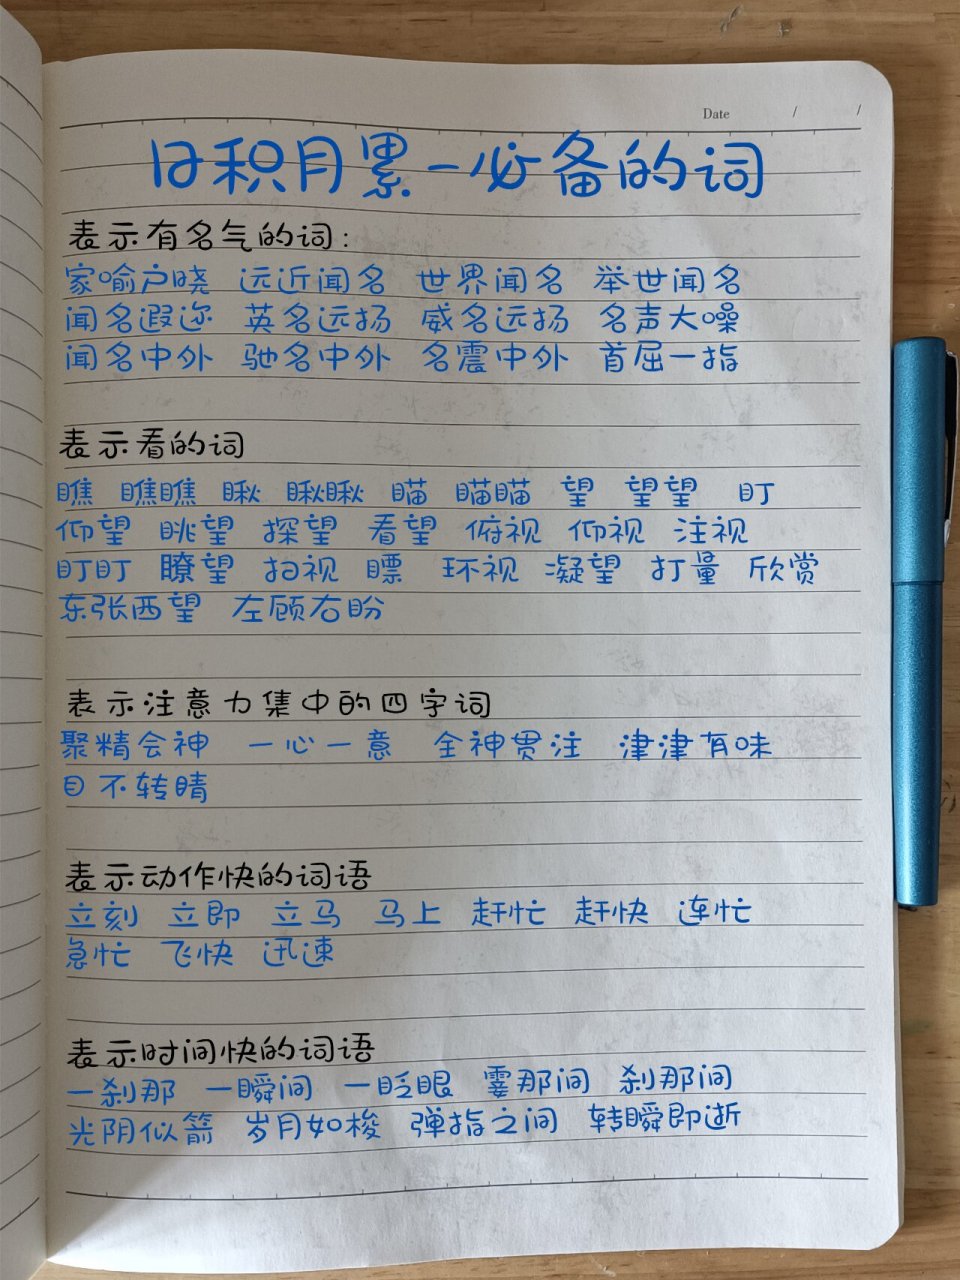 Date / /
日积月累-必备的词
表示有名气的词:
家喻户晓 远近闻名 世界闻名 举世闻名
闻名遐迩 英名远扬 威名远扬 名声大噪
闻名中外 驰名中外 名震中外 首屈一指
表示看的词
瞧 瞧瞧 瞅 瞅瞅 瞄 瞄瞄 望 望望 盯
仰望 眺望 探望 看望 俯视 仰视 注视
盯盯 瞭望 扫视 瞟 环视 凝望 打量 欣赏
东张西望 左顾右盼
表示注意力集中的四字词
聚精会神 一心一意 全神贯注 津津有味
目不转睛
表示动作快的词语
立刻 立即 立马 马上 赶忙 赶快 连忙
急忙 飞快 迅速
表示时间快的词语
一刹那 一瞬间 一眨眼 霎那间 刹那间
光阴似箭 岁月如梭 弹指之间 转瞬即逝